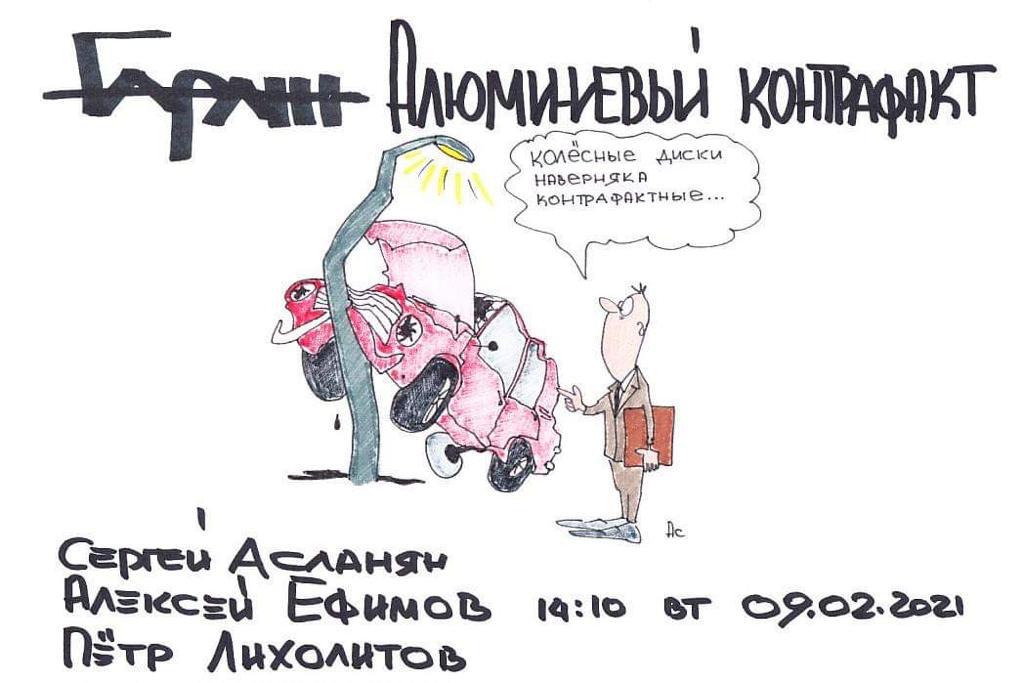 Гараж Алюминиевый контрафакт
колёсные диски
наверняка
контрафактные...
Ас
Сергей Асланян
Алексей Ефимов 14:10 вт 09.02.2021
Пётр Лихолитов